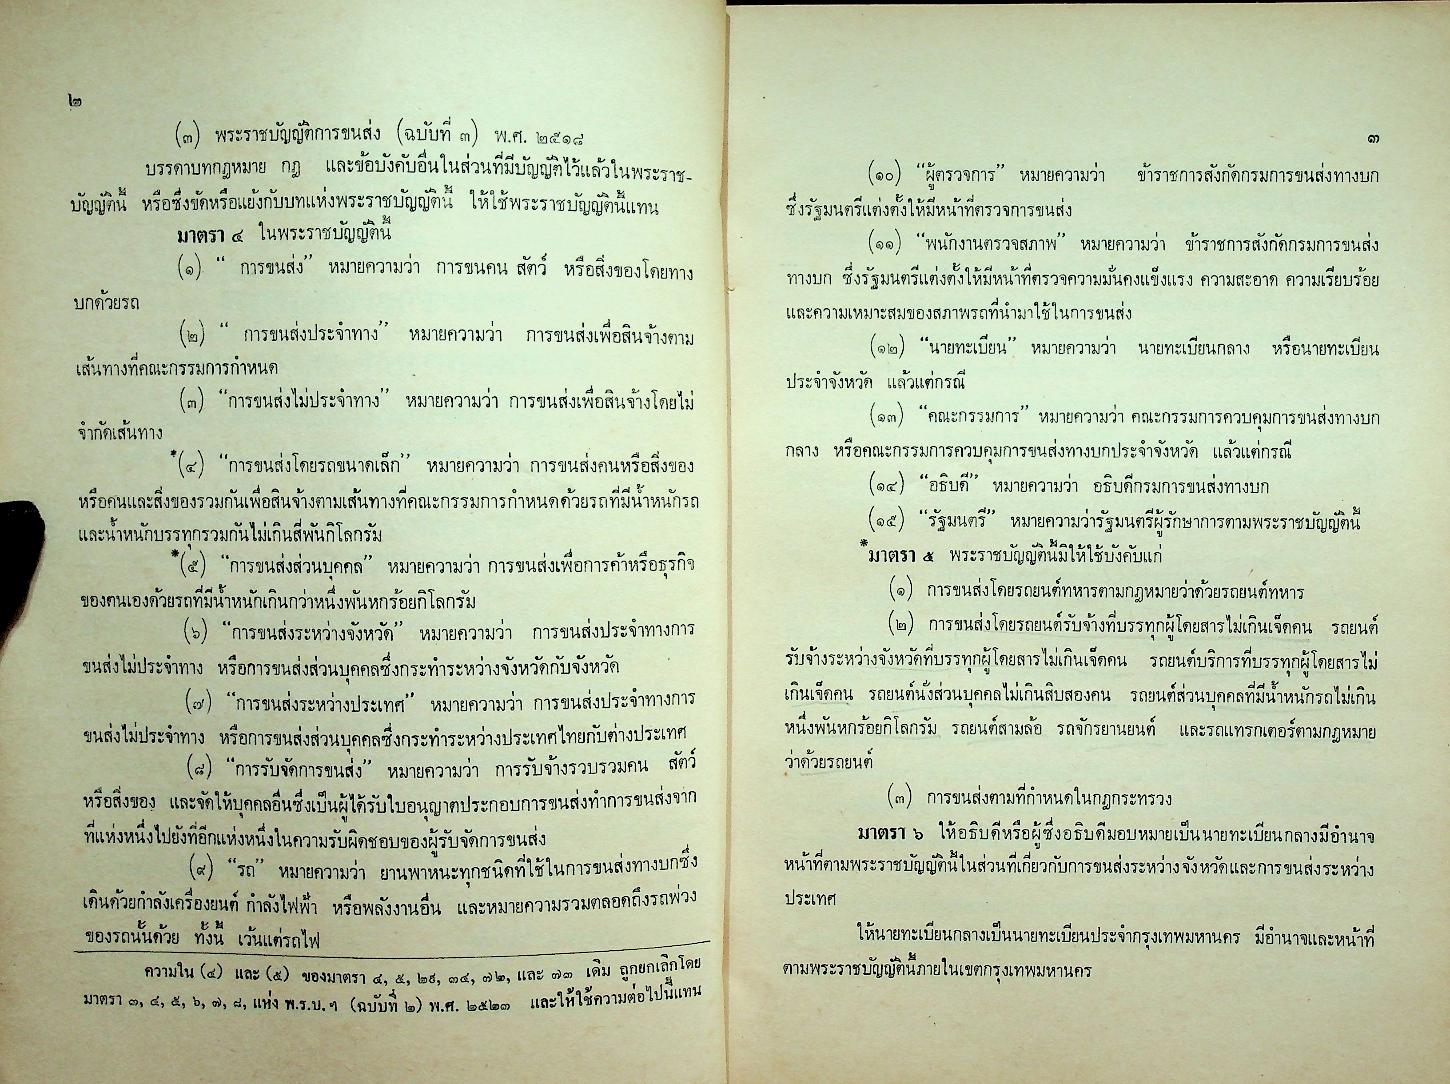 ๒
(๓) พระราชบัญญัติการขนส่ง (ฉบับที่ ๓) พ.ศ. ๒๕๑๘
บรรดาบทกฎหมาย กฎ และข้อบังคับอื่นในส่วนที่มีบัญญัติไว้แล้วในพระราช-
บัญญัตินี้ หรือซึ่งขัดหรือแย้งกับบทแห่งพระราชบัญญัตินี้ ให้ใช้พระราชบัญญัตินี้แทน
มาตรา ๔ ในพระราชบัญญัตินี้
(๑) “ การขนส่ง” หมายความว่า การขนคน สัตว์ หรือสิ่งของโดยทาง
บกด้วยรถ
(๒) “ การขนส่งประจำทาง” หมายความว่า การขนส่งเพื่อสินจ้างตาม
เส้นทางที่คณะกรรมการกำหนด
(๓) “การขนส่งไม่ประจำทาง” หมายความว่า การขนส่งเพื่อสินจ้างโดยไม่
จำกัดเส้นทาง
*(๔) “การขนส่งโดยรถขนาดเล็ก” หมายความว่า การขนส่งคนหรือสิ่งของ
หรือคนและสิ่งของรวมกันเพื่อสินจ้างตามเส้นทางที่คณะกรรมการกำหนดด้วยรถที่มีน้ำหนักรถ
และน้ำหนักบรรทุกรวมกันไม่เกินสี่พันกิโลกรัม
*(๕) “การขนส่งส่วนบุคคล” หมายความว่า การขนส่งเพื่อการค้าหรือธุรกิจ
ของตนเองด้วยรถที่มีน้ำหนักเกินกว่าหนึ่งพันหกร้อยกิโลกรัม
(๖) “การขนส่งระหว่างจังหวัด” หมายความว่า การขนส่งประจำทางการ
ขนส่งไม่ประจำทาง หรือการขนส่งส่วนบุคคลซึ่งกระทำระหว่างจังหวัดกับจังหวัด
(๗) “การขนส่งระหว่างประเทศ” หมายความว่า การขนส่งประจำทางการ
ขนส่งไม่ประจำทาง หรือการขนส่งส่วนบุคคลซึ่งกระทำระหว่างประเทศไทยกับต่างประเทศ
(๘) “การรับจัดการขนส่ง” หมายความว่า การรับจ้างรวบรวมคน สัตว์
หรือสิ่งของ และจัดให้บุคคลอื่นซึ่งเป็นผู้ได้รับใบอนุญาตประกอบการขนส่งทำการขนส่งจาก
ที่แห่งหนึ่งไปยังที่อีกแห่งหนึ่งในความรับผิดชอบของผู้รับจัดการขนส่ง
(๙) “รถ” หมายความว่า ยานพาหนะทุกชนิดที่ใช้ในการขนส่งทางบกซึ่ง
เดินด้วยกำลังเครื่องยนต์ กำลังไฟฟ้า หรือพลังงานอื่น และหมายความรวมตลอดถึงรถพ่วง
ของรถนั้นด้วย ทั้งนี้ เว้นแต่รถไฟ
ความใน (๔) และ (๕) ของมาตรา ๔, ๕, ๒๙, ๓๔, ๗๒, และ ๗๓ เดิม ถูกยกเลิกโดย
มาตรา ๓, ๔, ๕, ๖, ๗, ๘, แห่ง พ.ร.บ.ฯ (ฉบับที่ ๒) พ.ศ. ๒๕๒๓ และให้ใช้ความต่อไปนี้แทน
๓
(๑๐) “ผู้ตรวจการ” หมายความว่า ข้าราชการสังกัดกรมการขนส่งทางบก
ซึ่งรัฐมนตรีแต่งตั้งให้มีหน้าที่ตรวจการขนส่ง
(๑๑) “พนักงานตรวจสภาพ” หมายความว่า ข้าราชการสังกัดกรมการขนส่ง
ทางบก ซึ่งรัฐมนตรีแต่งตั้งให้มีหน้าที่ตรวจความมั่นคงแข็งแรง ความสะอาด ความเรียบร้อย
และความเหมาะสมของสภาพรถที่นำมาใช้ในการขนส่ง
(๑๒) “นายทะเบียน” หมายความว่า นายทะเบียนกลาง หรือนายทะเบียน
ประจำจังหวัด แล้วแต่กรณี
(๑๓) “คณะกรรมการ” หมายความว่า คณะกรรมการควบคุมการขนส่งทางบก
กลาง หรือคณะกรรมการควบคุมการขนส่งทางบกประจำจังหวัด แล้วแต่กรณี
(๑๔) “อธิบดี” หมายความว่า อธิบดีกรมการขนส่งทางบก
(๑๕) “รัฐมนตรี” หมายความว่ารัฐมนตรีผู้รักษาการตามพระราชบัญญัตินี้
*มาตรา ๕ พระราชบัญญัตินี้มิให้ใช้บังคับแก่
(๑) การขนส่งโดยรถยนต์ทหารตามกฎหมายว่าด้วยรถยนต์ทหาร
(๒) การขนส่งโดยรถยนต์รับจ้างที่บรรทุกผู้โดยสารไม่เกินเจ็ดคน รถยนต์
รับจ้างระหว่างจังหวัดที่บรรทุกผู้โดยสารไม่เกินเจ็ดคน รถยนต์บริการที่บรรทุกผู้โดยสารไม่
เกินเจ็ดคน รถยนต์นั่งส่วนบุคคลไม่เกินสิบสองคน รถยนต์ส่วนบุคคลที่มีน้ำหนักรถไม่เกิน
หนึ่งพันหกร้อยกิโลกรัม รถยนต์สามล้อ รถจักรยานยนต์ และรถแทรกเตอร์ตามกฎหมาย
ว่าด้วยรถยนต์
(๓) การขนส่งตามที่กำหนดในกฎกระทรวง
มาตรา ๖ ให้อธิบดีหรือผู้ซึ่งอธิบดีมอบหมายเป็นนายทะเบียนกลางมีอำนาจ
หน้าที่ตามพระราชบัญญัตินี้ในส่วนที่เกี่ยวกับการขนส่งระหว่างจังหวัดและการขนส่งระหว่าง
ประเทศ
ให้นายทะเบียนกลางเป็นนายทะเบียนประจำกรุงเทพมหานคร มีอำนาจและหน้าที่
ตามพระราชบัญญัตินี้ภายในเขตกรุงเทพมหานคร